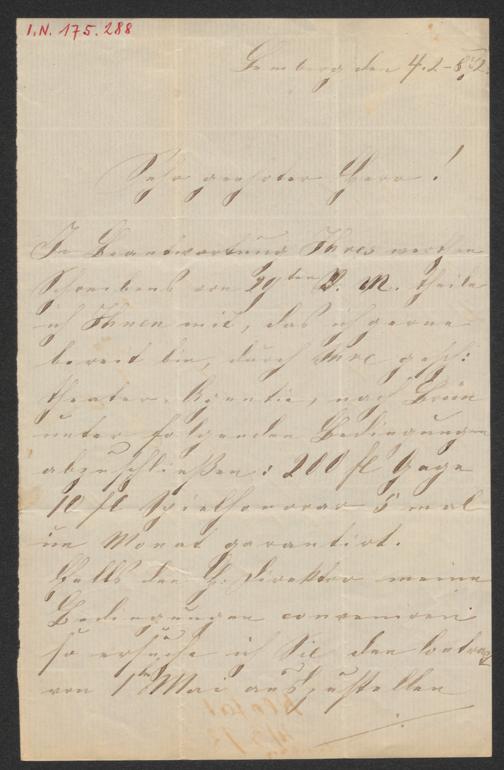 I.N. 175.288
Lemberg den 4.2-82
Sehr geehrter Herr!
In Beantwortung Ihres werthen
Schreibens von 29ten v. M. theile
ich Ihnen mit, das ich gerne
bereit bin, durch Ihre gesch:
theater-Agentie, nach Brün
unter folgenden Bedingungen
abzuschließen: 200 fl Gage
10 fl Spielhonorar 5 mal
im Monat garantirt.
Falls den H. Direktor meine
Bedingungen conveniren
so ersuche ich Sie den Contract
von 1ten Mai auszustellen